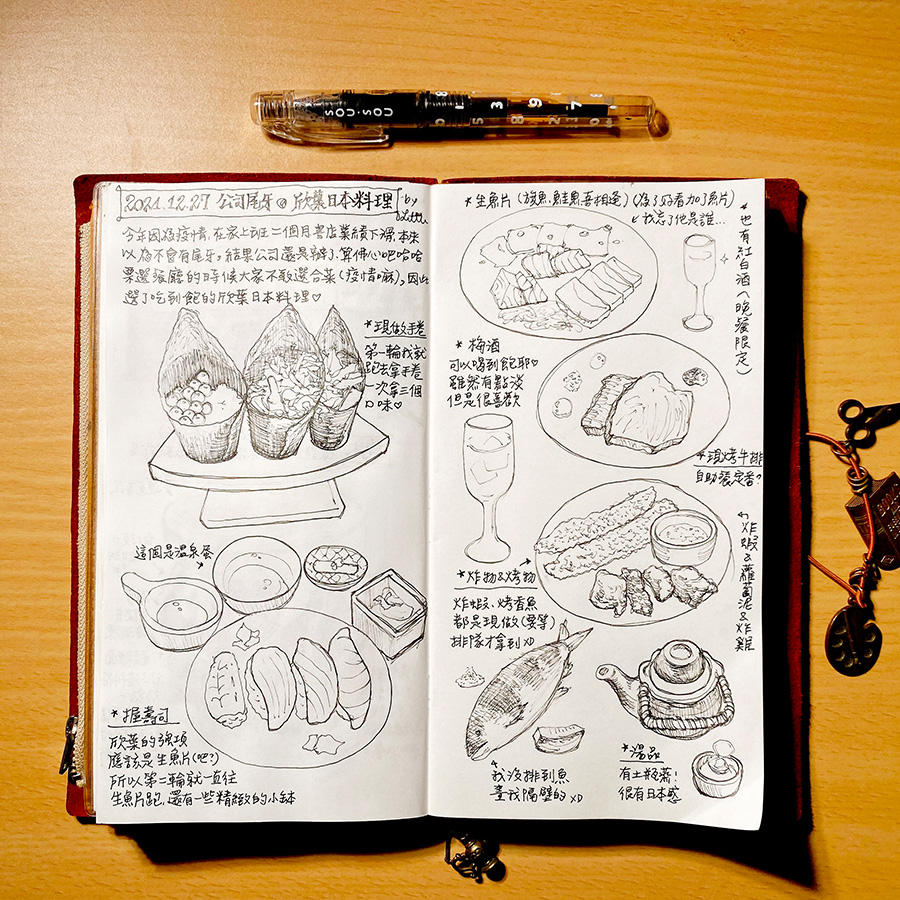 SOU·SOU
2021.12.27 公司尾牙@欣葉日本料理
by
今年因為疫情,在家上班二個月書店業績下滑,本來
以為不會有尾牙,結果公司還是辦了,算佛心吧哈哈
票選餐廳的時候大家不敢選合菜(疫情嘛),因此
選了吃到飽的欣葉日本料理♡
*現做手卷
第一輪我就
跑去拿手卷
一次拿三個
口味♡
這個是溫泉蛋
*握壽司
欣葉的強項
應該是生魚片(吧?)
所以第二輪就一直往
生魚片跑,還有一些精緻的小缽
*生魚片(旗魚、鮭魚、喜相逢)(為了好看加了魚片)
我忘了他是誰...
*也有紅白酒(晚餐限定)
*梅酒
可以喝到飽耶♡
雖然有點淡
但是很喜歡
*現烤牛排
自助餐定番?
炸蝦&蘿蔔泥&炸雞
*炸物&烤物
炸蝦、烤香魚
都是現做(要等)
排隊才拿到XD
我沒排到魚
畫我隔壁的XD
*湯品
有土瓶蒸!
很有日本感